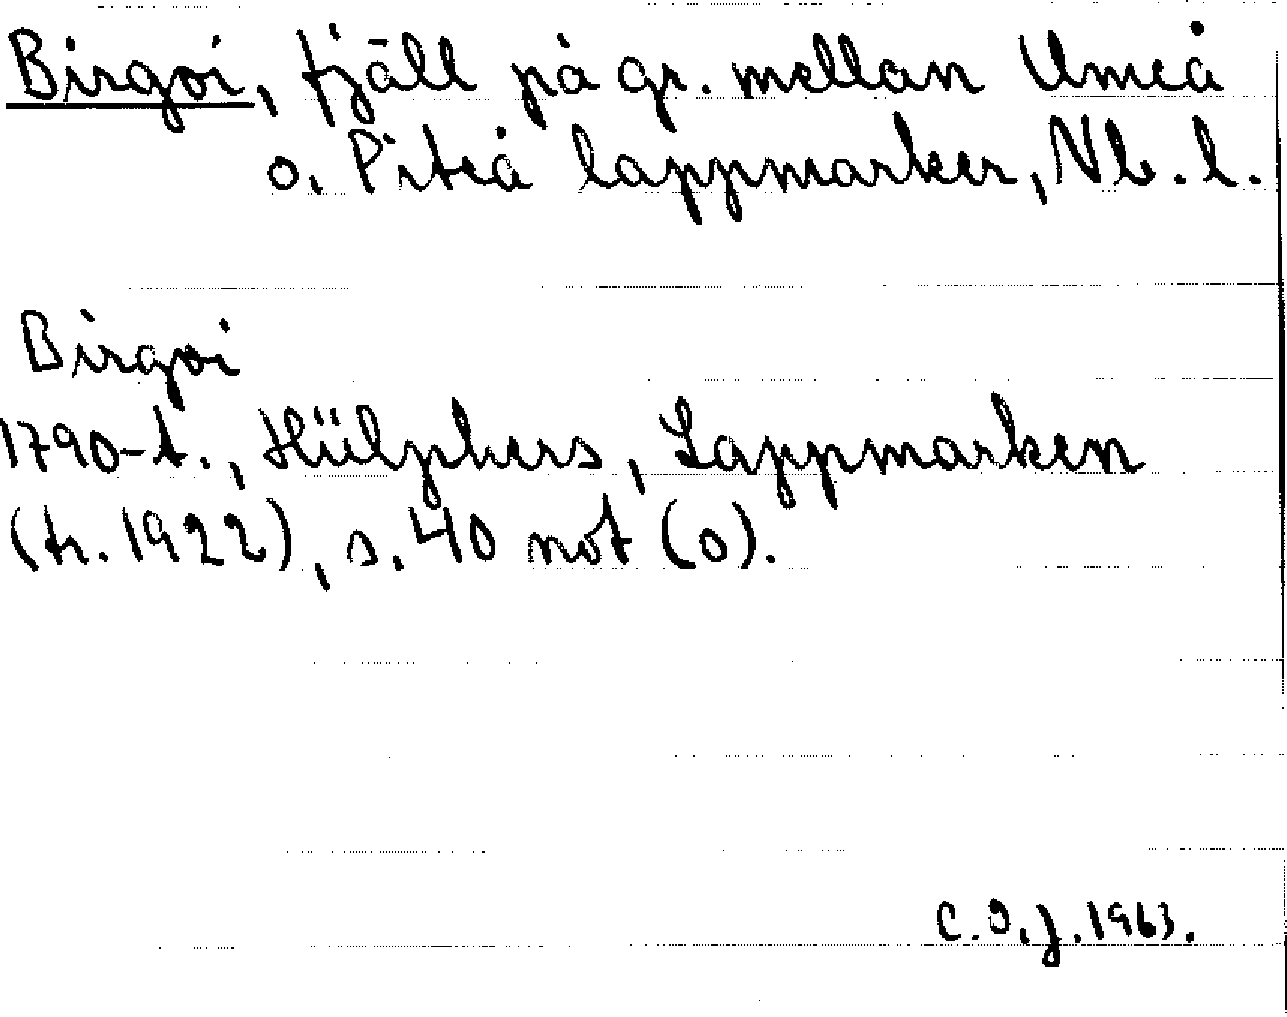 Birgoi, fjäll på gr. mellan Umeå
o. Piteå lappmarker, Nb. l.
Birgoi
1790-t., Hülphers, Lappmarken
(tr. 1922), s. 40 not (o).
C.O.J. 1963.